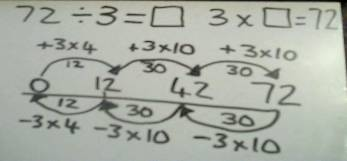 72 ÷ 3 = □ 3 × □ = 72
+3×4 +3×10 +3×10
12 30 30
0 12 42 72
12 30 30
-3×4 -3×10 -3×10